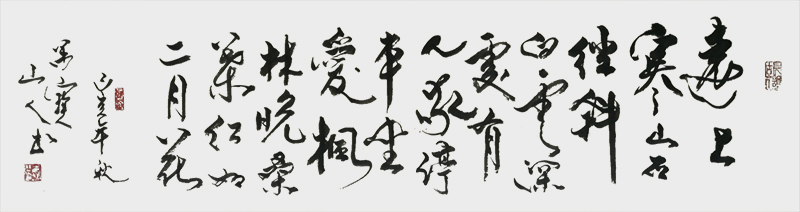 遠上
寒山石
徑斜
白雲深
處有
人家停
車坐
愛楓
林晚霜
葉紅如
二月花
己亥年秋
山人書